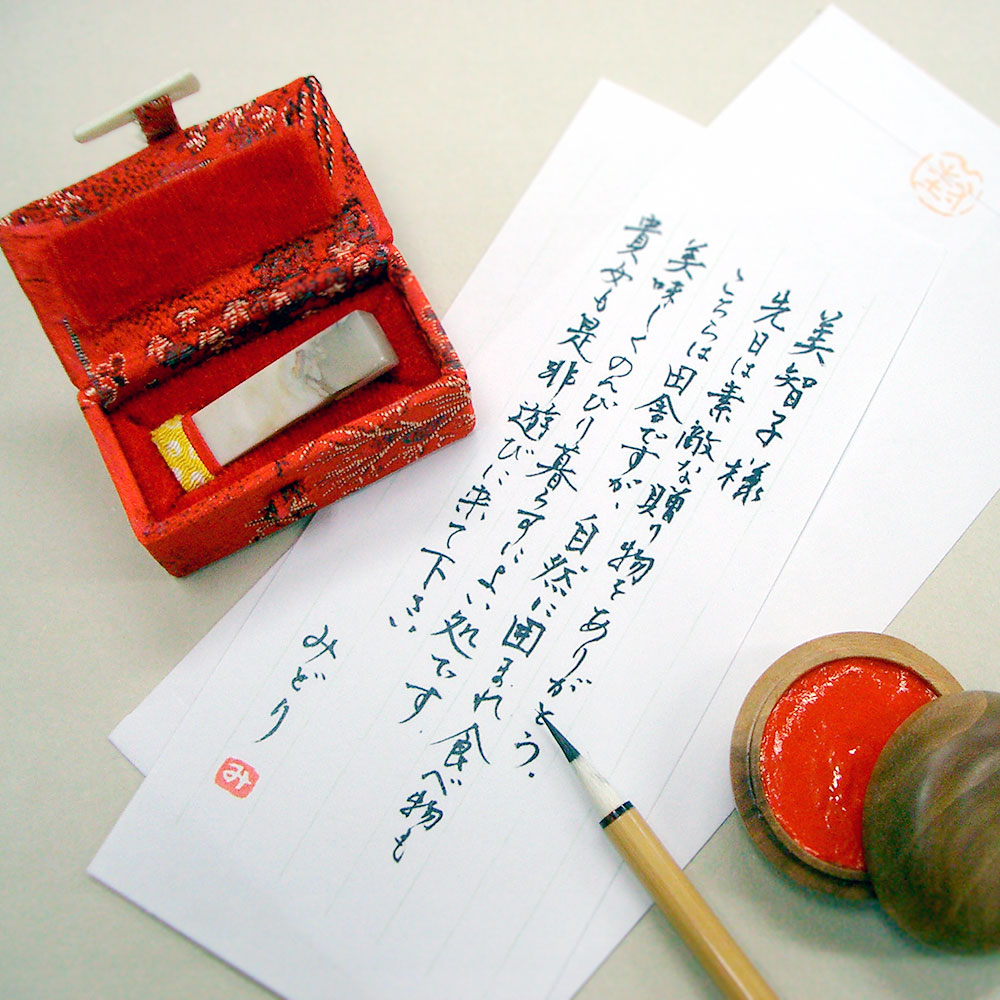 美智子様
先日は素敵な贈り物をありがとう.
こちらは田舎ですが、自然に囲まれ食べ物も
美味しくのんびり暮らすによい処です.
貴女も是非遊びに来て下さい
みどり
み